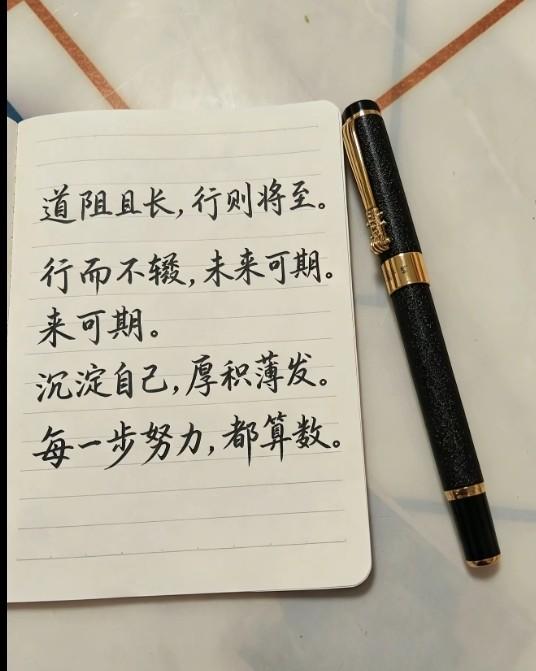 道阻且长,行则将至。
行而不辍,未来可期。
来可期。
沉淀自己,厚积薄发。
每一步努力,都算数。